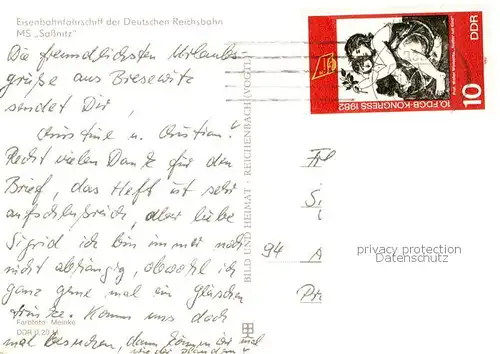 Eisenbahnfährschiff der Deutschen Reichsbahn
MS „Saßnitz"
Die freundlichsten Urlaubs-
grüße aus Biesewitz
sendet Dir,
Christine u. Christian!
Recht vielen Dank für den
Brief, das Heft ist sehr
aufschlußreich, aber liebe
Sigrid ich bin immer noch
nicht abhängig, obwohl ich
ganz gerne mal ein Gläschen
trinke. Komm uns doch
mal besuchen, dann können wir mal
wieder plaudern!
Farbfoto: Meinke
DDR 0,20 M
BILD UND HEIMAT · REICHENBACH (VOGTL)
10. FDGB-KONGRESS 1982
DDR
10
94
privacy protection
Datenschutz